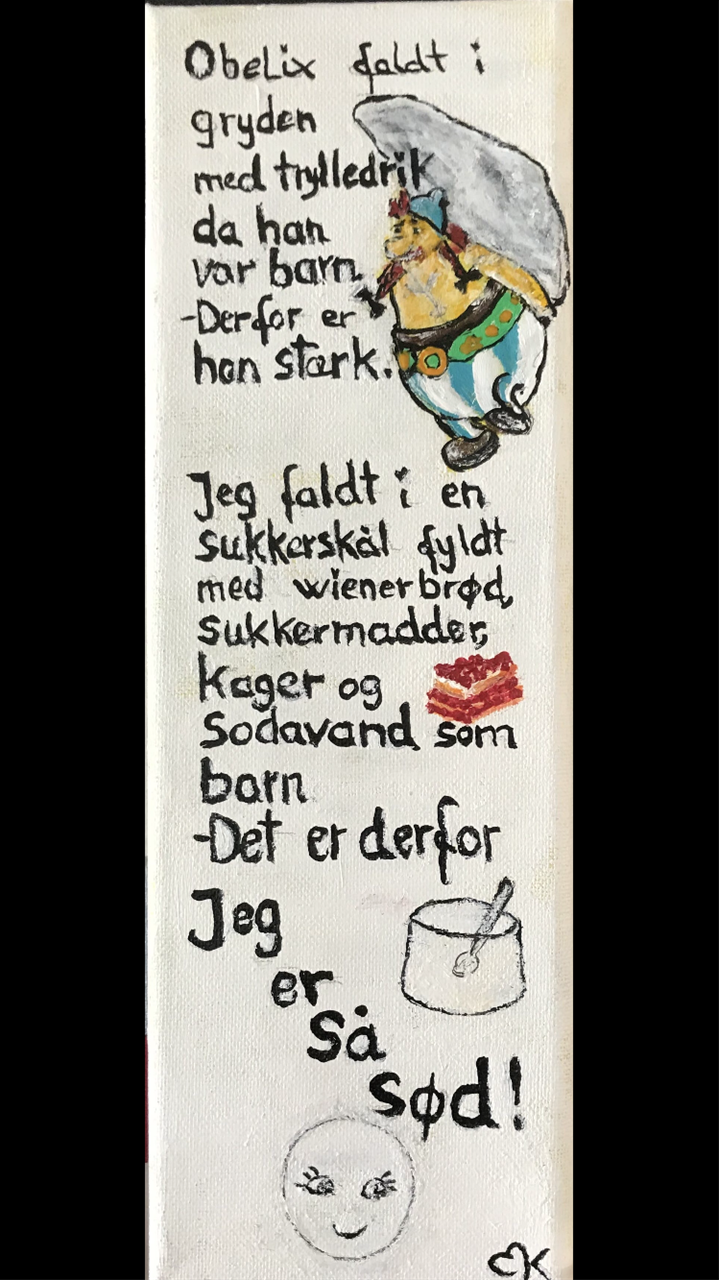 Obelix faldt i
gryden
med trylledrik
da han
var barn.
-Derfor er
han stærk.
Jeg faldt i en
sukkerskål fyldt
med wienerbrød,
sukkermadder,
kager og
sodavand som
barn
-Det er derfor
Jeg
er
så
sød!